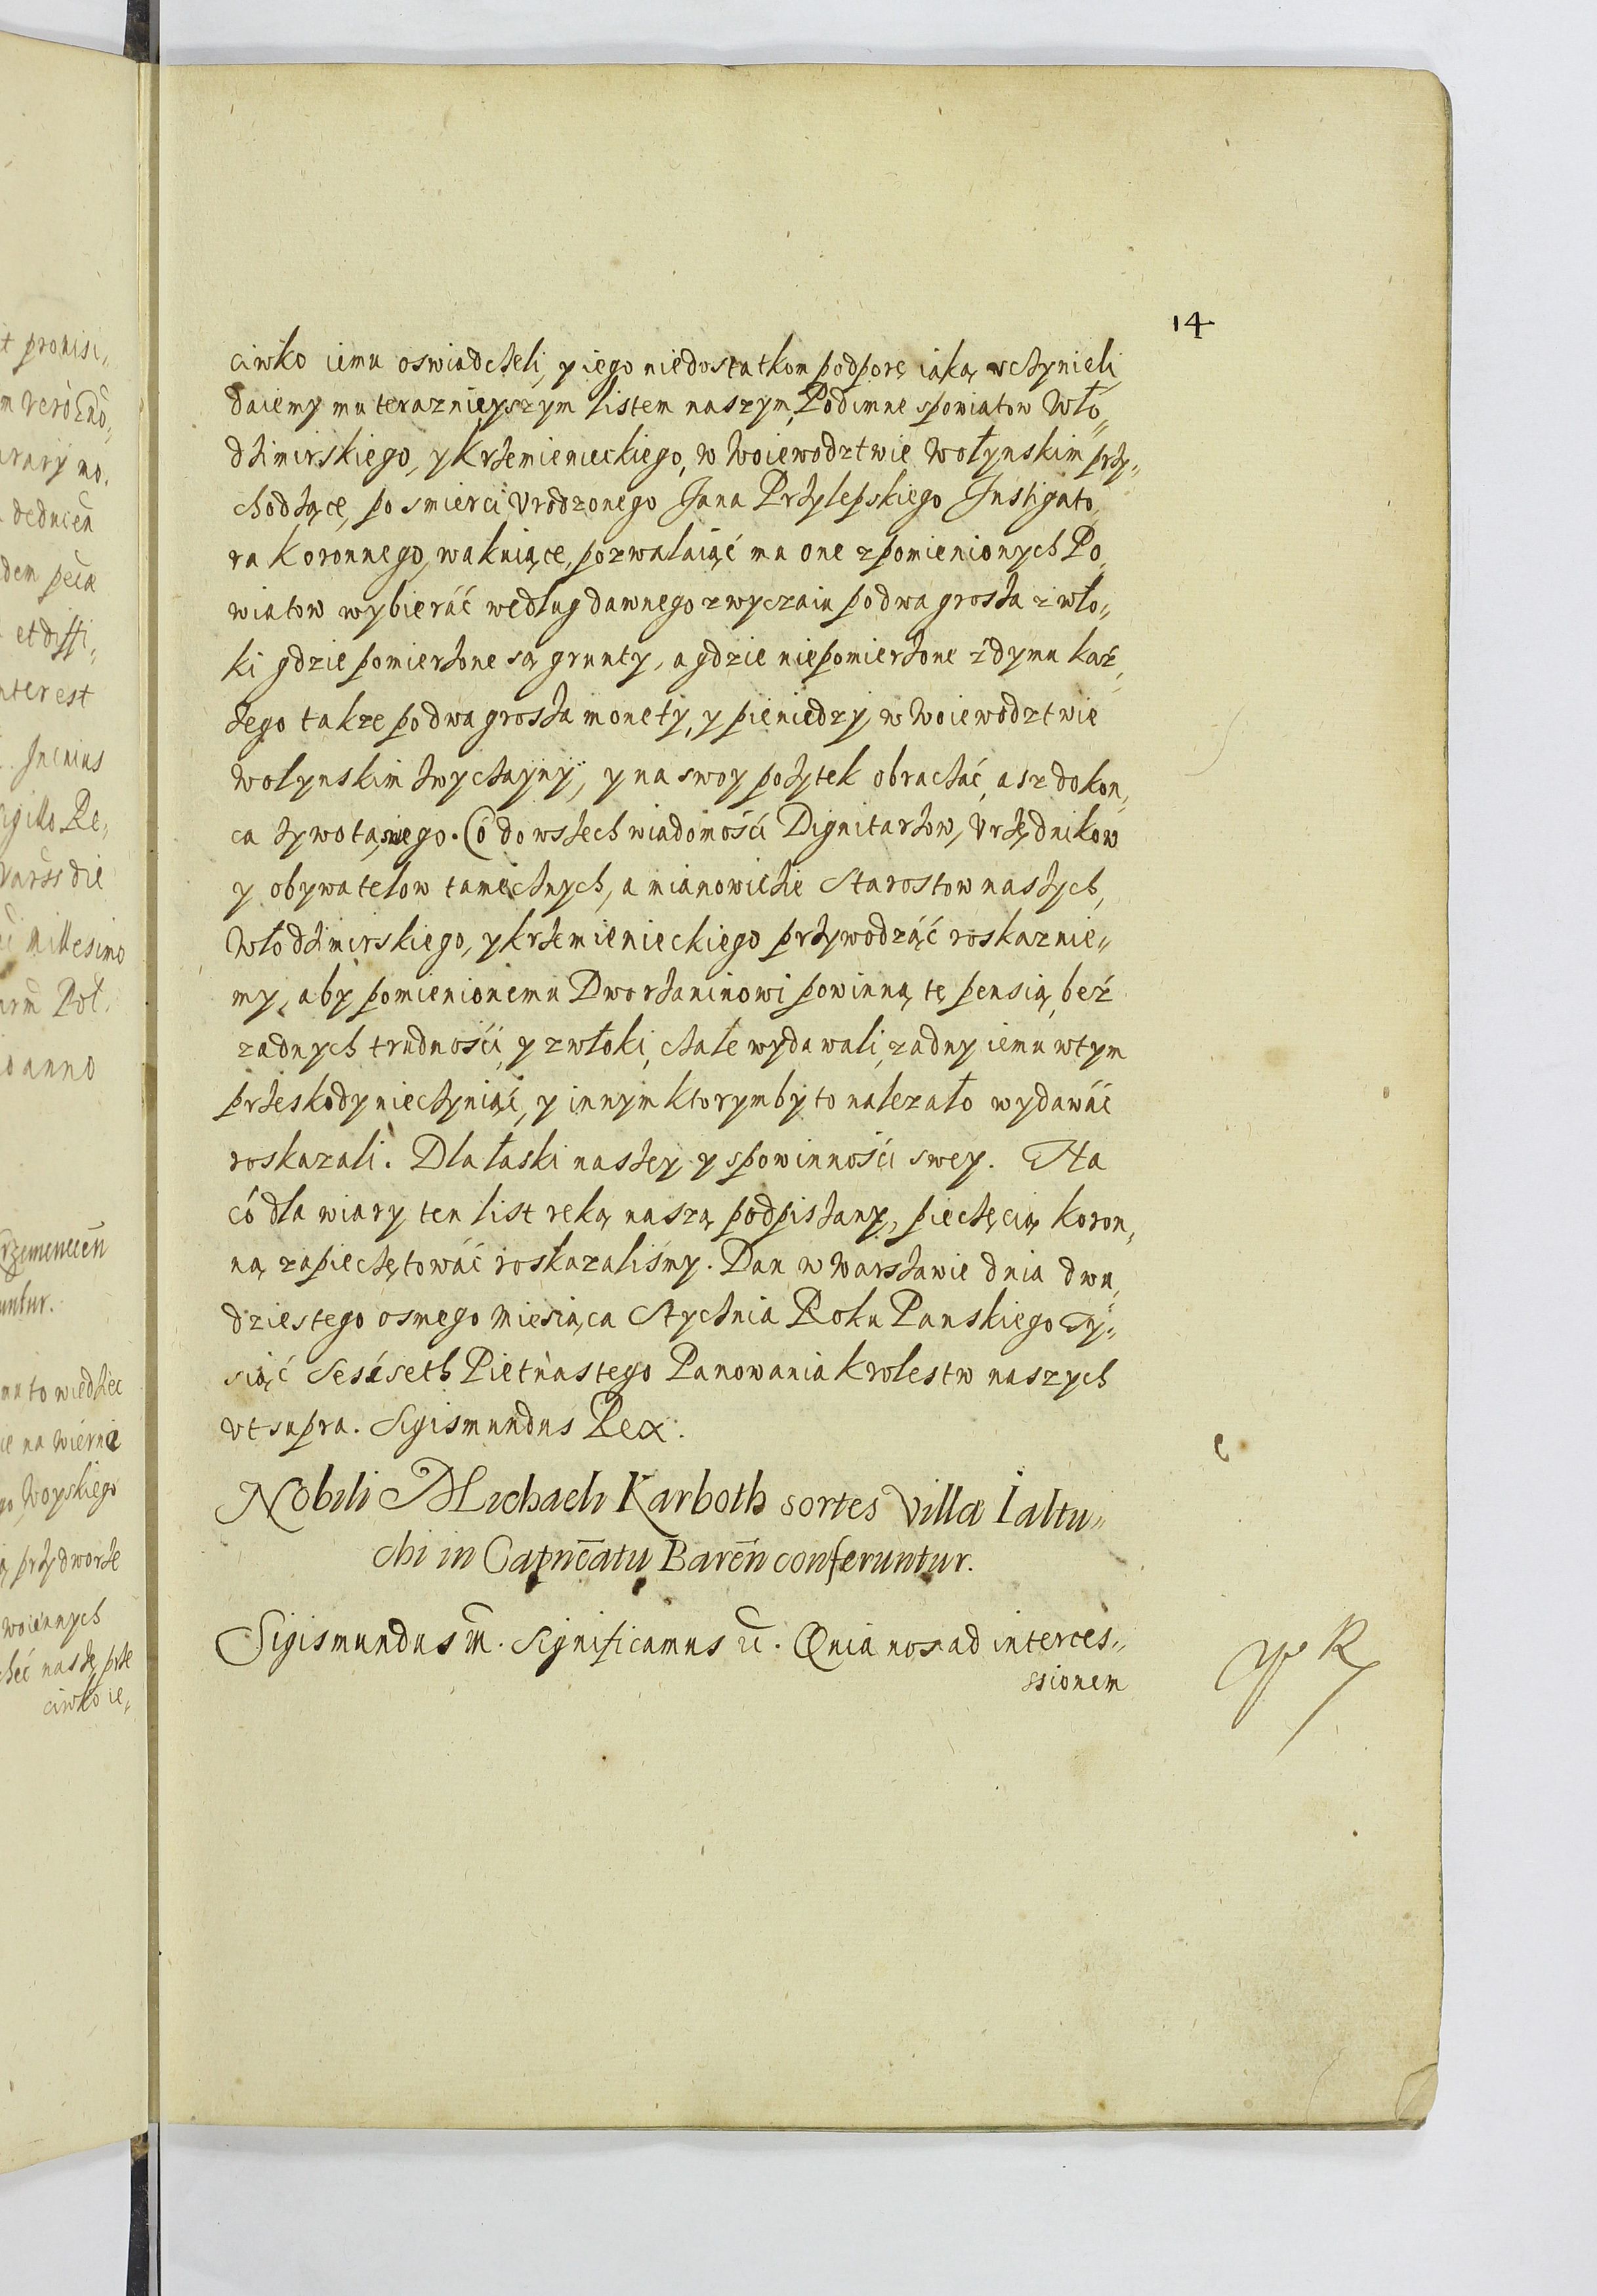 14
ciwko iemu oswiadcżeli, y iego niedostatkom podporę iaką vcżynieli
daiemy mu teraznieyszym listem naszym, Podimne spowiatow Wło„
dżimirskiego, y Krżemienieckiego, w Woiewodztwie Wołynskim prży„
chodżące, po smierci Vrodzonego Jana Prżylepskiego Instigato„
ra Koronnego, wakuiące, pozwalaiąć mu one z pomienionych Po„
wiatow wybieráć według dawnego zwyczaiu po dwa grosża z wło„
ki gdzie pomierżone są grunty, a gdzie niepomierżone z dymu kaź„
żego takze po dwa grosża monety, y pieniedzy w Woiewodztwie
Wołynskim żwycżayny, y na swoy pożytek obracżáć, asz do kon„
ca żywota swego. Co do wsżech wiadomośći Dignitarżow, Vrżędnikow
y obywatelow tamecżnych, a mianowicżie Starostow nasżych,
Włodżimirskiego, y krżemienieckiego prżywodząć roskaznie„
my, aby pomienionemu Dworżaninowi powinną tę pensią, beź
zadnych trudnośći, y zwłoki, cżale wydawali, zadny iemu w tym
prżeskody niecżyniąć, y innym ktorymby to nalezało wydawáć
roskazali. Dla łaski nasżey y spowinnośći swey. Na
có dla wiary ten list reką naszą podpisżany, piecżęcią koron„
ną zapiecżętowáć roskazaliśmy. Dan w Warsżawie dnia dwu„
dziestego osmego Miesiąca Stycżnia Roku Panskiego Ty„
siąć Seśćseth Pietnastego Panowania Krolestw naszych
vt supra. Sigismundus Rex.
Nobili Michaeli Karboth sortes Villæ Ialtu„
chi in Capnēatu Barēn conferuntur.
Sigismundus III. Significamus &c. Quia nos ad interces„
ssionem
t prouisi„
dedncen
et diffi„
nterest
Incuius
sigillo Re„
millesimo
o anno
Krzemenecen
untur.
ie na wierne
go Woyskiego
prży dworże
woiennych
cheć nasżę prże
ciwko ie„